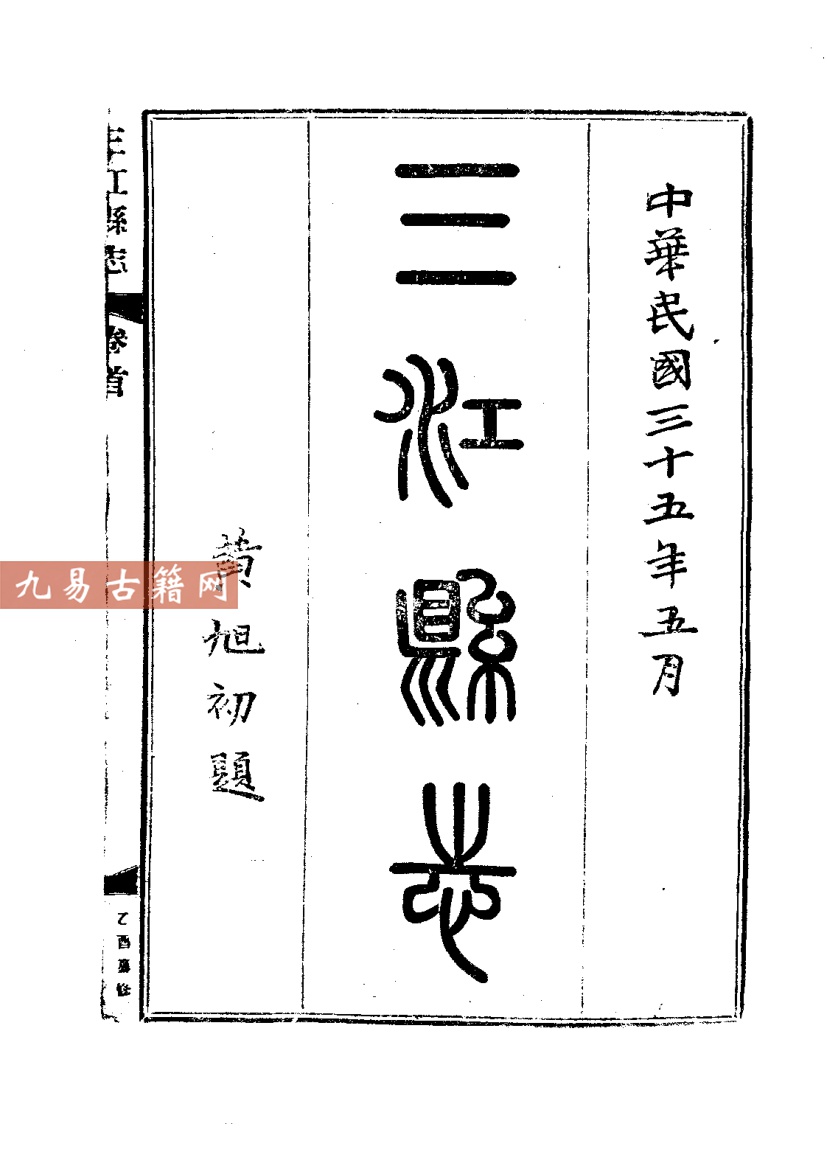 中華民國三十五年五月
三江縣志
黃旭初題
三江縣志
卷首
乙酉纂修
九易古籍网